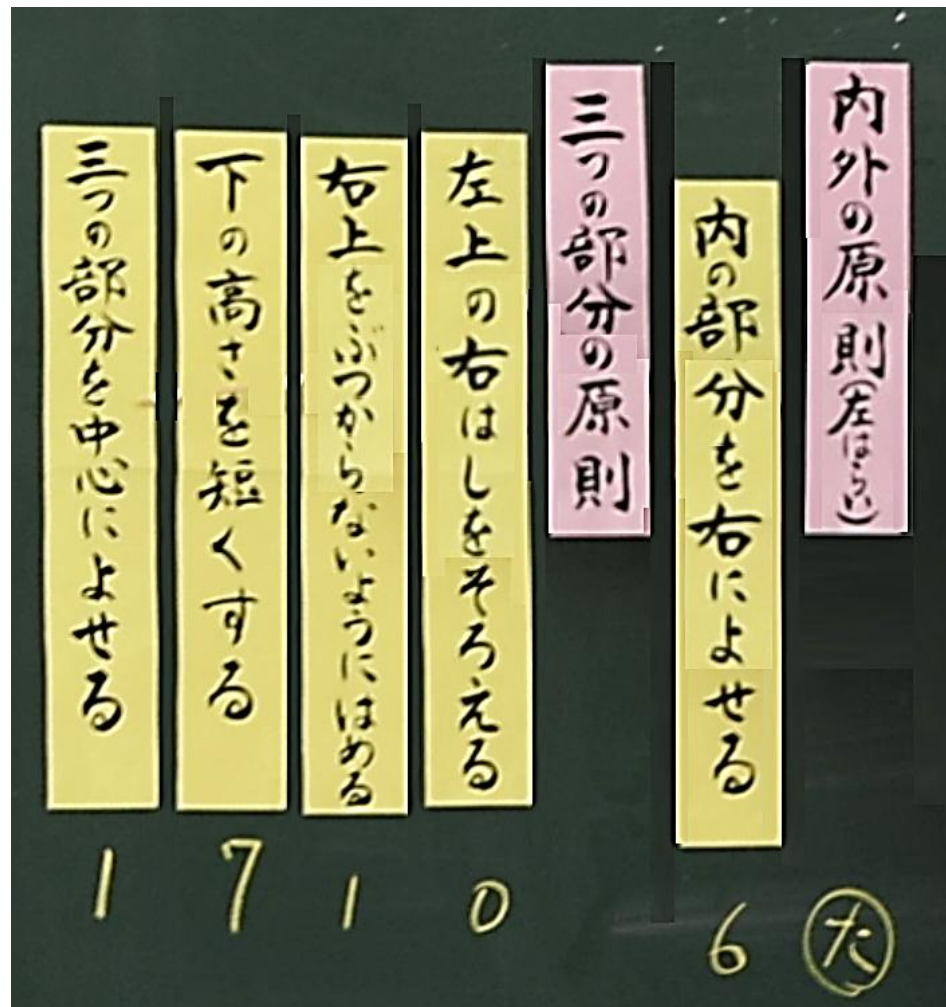 内外の原則(左はらい)
内の部分を右によせる
三つの部分の原則
左上の右はしをそろえる
右上をぶつからないようにはめる
下の高さを短くする
三つの部分を中心によせる
た
6
0
1
7
1